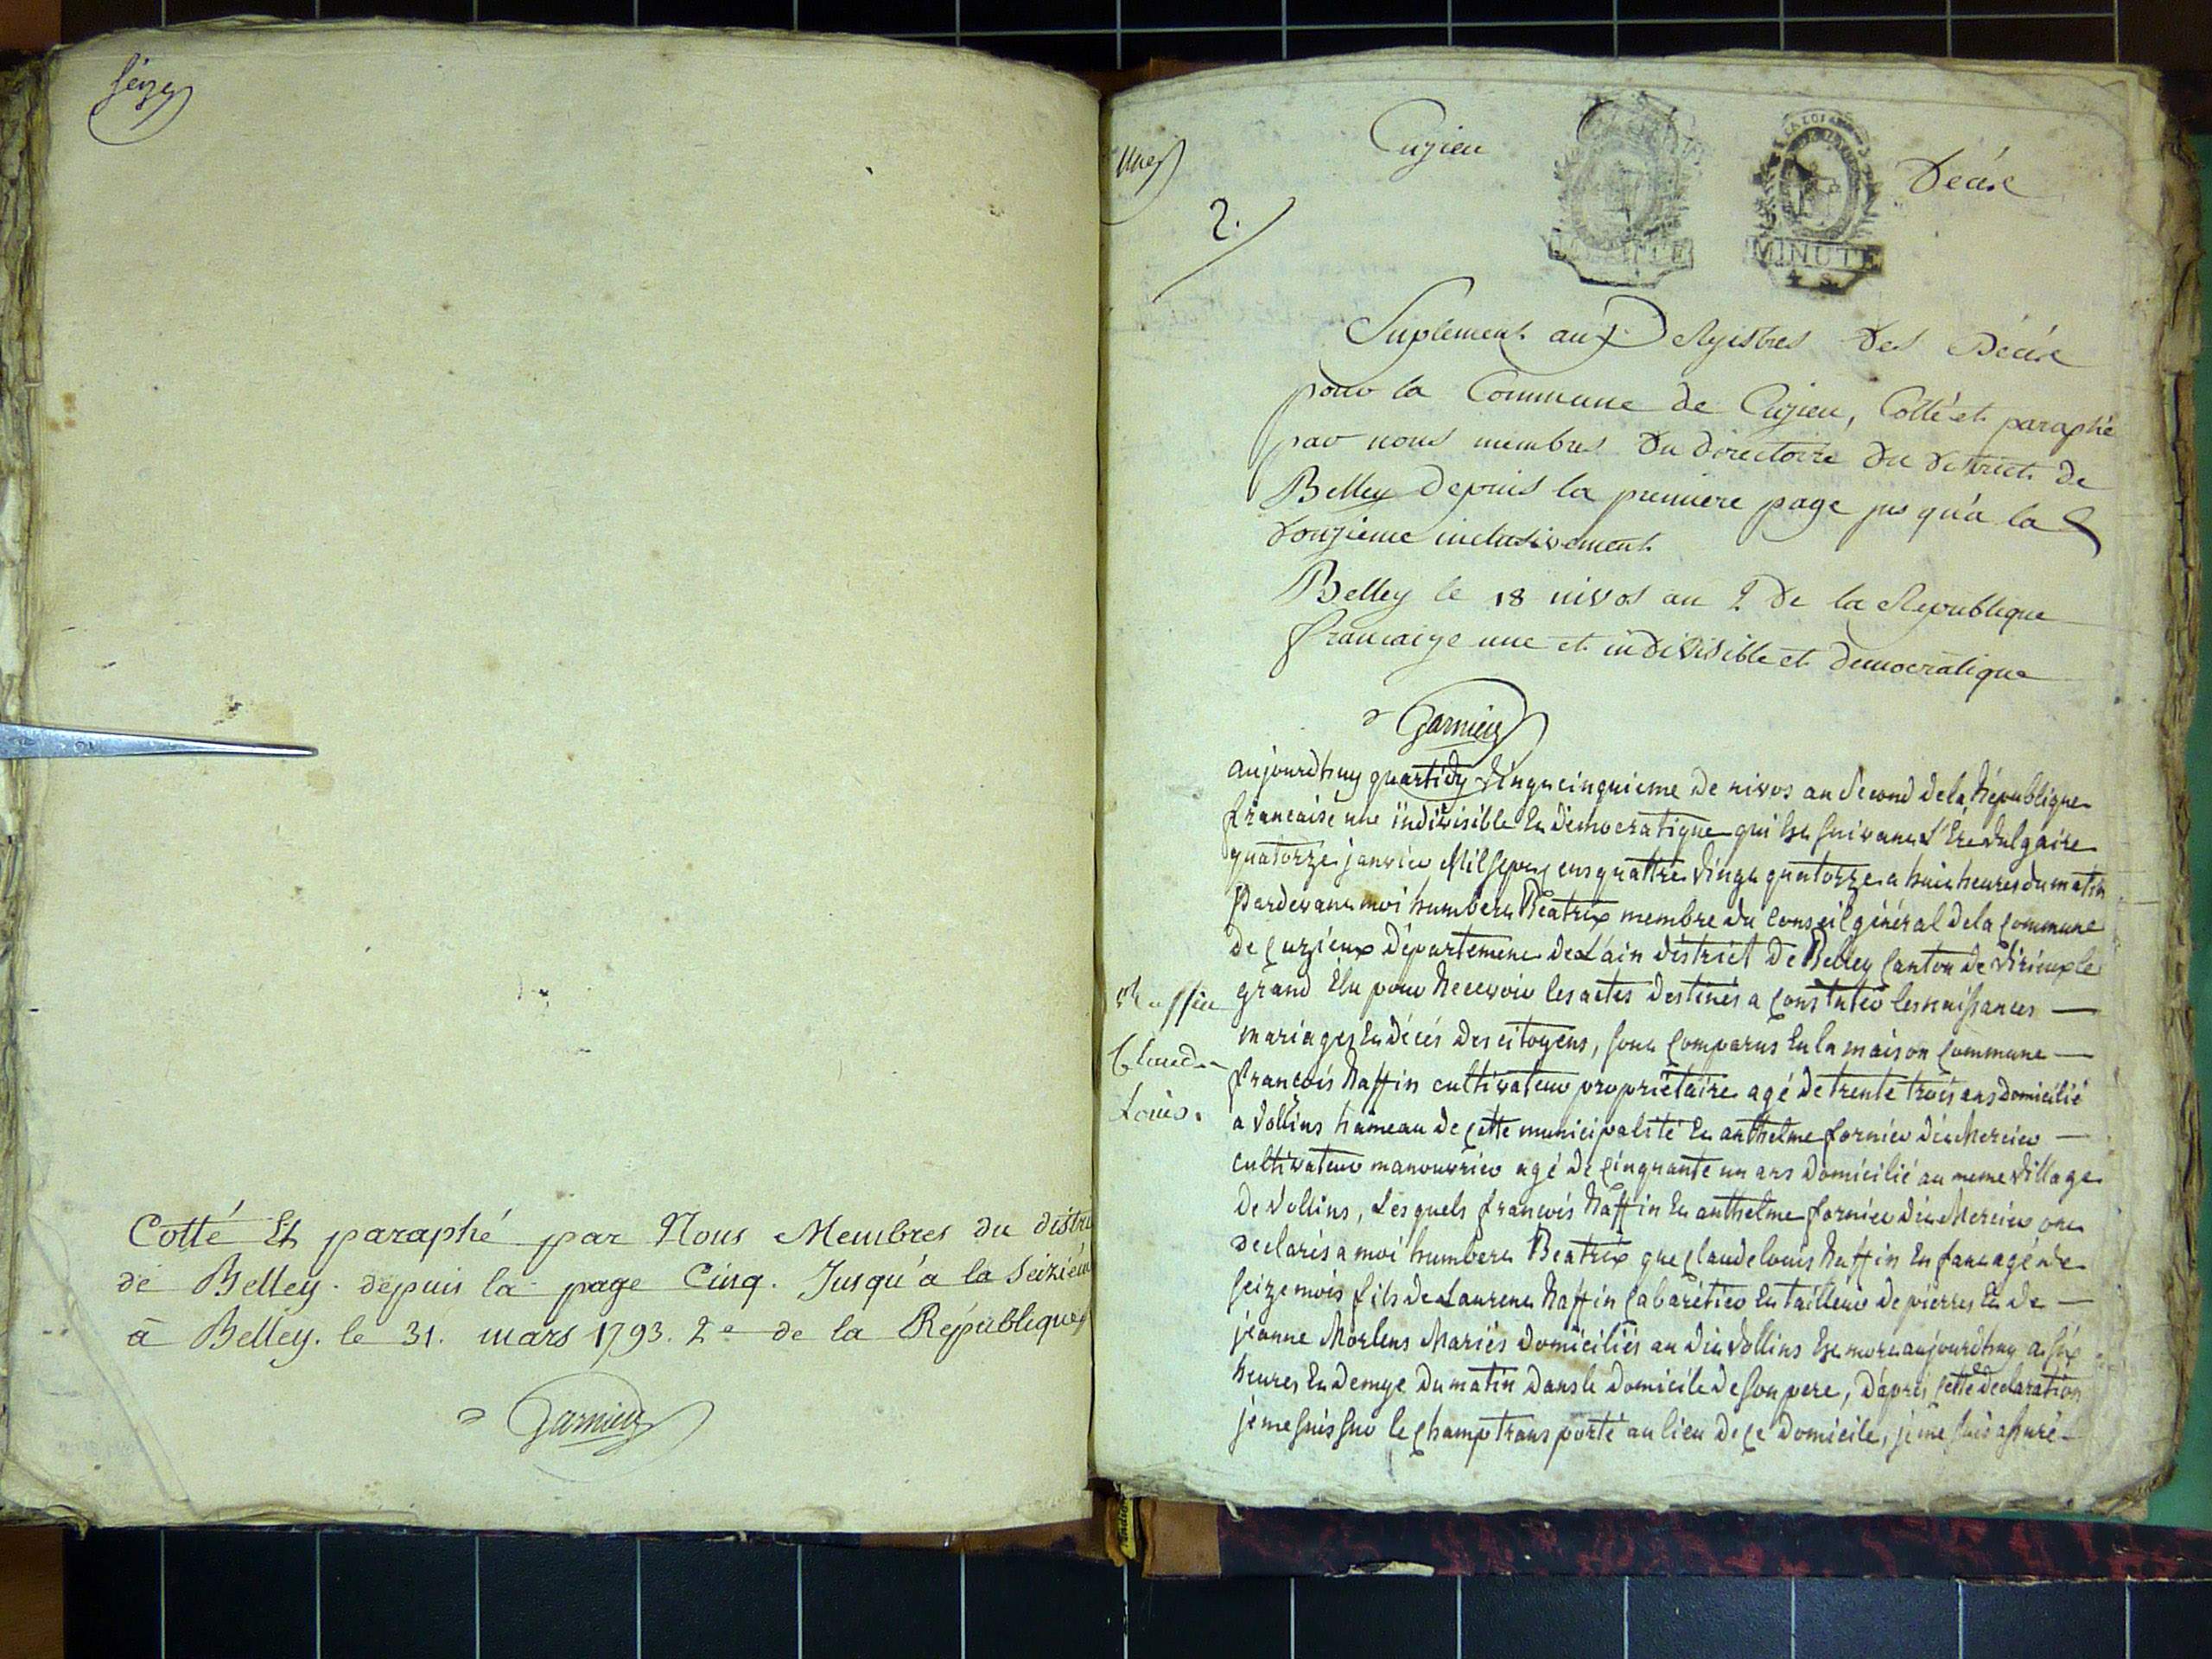 Seize
Cotté Et paraphé par Nous Membres du distri
de Belley. depuis la page Cinq. Jusqu'a la Seizièm
à Belley. le 31. mars 1793. 2e de la République
Garnier
une
2.
Cuzieu
MINUTE
MINUTE
4. S.
LA LOI
Décés
Suplement aux Registres des Décés
pour la Commune de Cuzieu, Cotté et paraphé
par nous membres du directoire du district de
Belley depuis la premiere page jusqu'a la
douzieme inclusivement
Belley le 18 nivos an 2 de la Republique
francaize une et indivisible et democratique
Garnier
aujourdhuy quartidy vingt cinquieme de nivos an second de la République
francaise une indivisible Et démocratique qui Est suivant L'Ere vulgaire
quatorze janvier Mil sept cens quattre vingt quatorze a huit heures du matin
Pardevant moi humbert Béatrix membre du Conseil général de la commune
de Cuzieux Département de L'ain district de Belley Canton de Virieux le
grand Elu pour Recevoir les actes destinés a constater les naissances —
mariages Et décés des citoyens, sont comparus En la maison commune —
francois Raffin cultivateur propriétaire agé de trente trois ans domicilié
a vollins hameau de cette municipalité Et anthelme fornier dit Mercier —
cultivateur manouvrier agé de cinquante un ans domicilié au meme village
de vollins, Lesquels francois Raffin Et anthelme fornier dit Mercier ont
declarés a moi humbert Beatrix que Claude louis Raffin Enfant agé de
seize mois fils de Laurent Raffin Cabarétier Et tailleur de pierres Et de —
jeanne Morlens Mariés domiciliés au dit vollins Est mort aujourdhuy a six
heures Et demye du matin dans le domicile de son pere, d'aprés cette declaration
je me suis sur le champ transporté au lieu de ce domicile, je me suis assuré
Raffin
Claude
Louis.